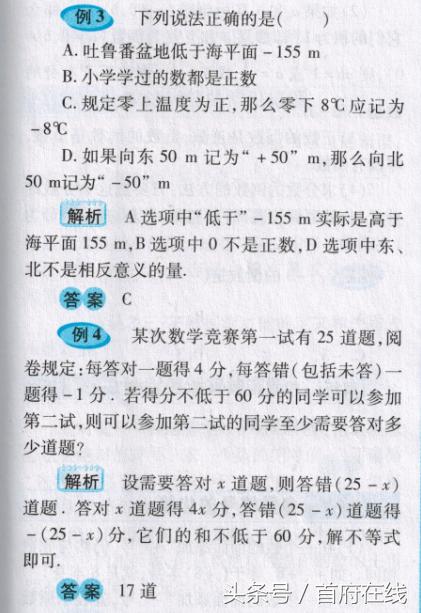 例3 下列说法正确的是( )
A.吐鲁番盆地低于海平面-155 m
B.小学学过的数都是正数
C.规定零上温度为正,那么零下8℃应记为
-8℃
D.如果向东50 m记为“+50”m,那么向北
50 m记为“-50”m
解析 A选项中“低于”-155 m实际是高于
海平面155 m,B选项中0不是正数,D选项中东、
北不是相反意义的量.
答案 C
例4 某次数学竞赛第一试有25道题,阅
卷规定:每答对一题得4分,每答错(包括未答)一
题得-1分.若得分不低于60分的同学可以参加
第二试,则可以参加第二试的同学至少需要答对多
少道题?
解析 设需要答对x道题,则答错(25-x)
道题.答对x道题得4x分,答错(25-x)道题得
-(25-x)分,它们的和不低于60分,解不等式
即可.
答案 17道
头条号/首府在线